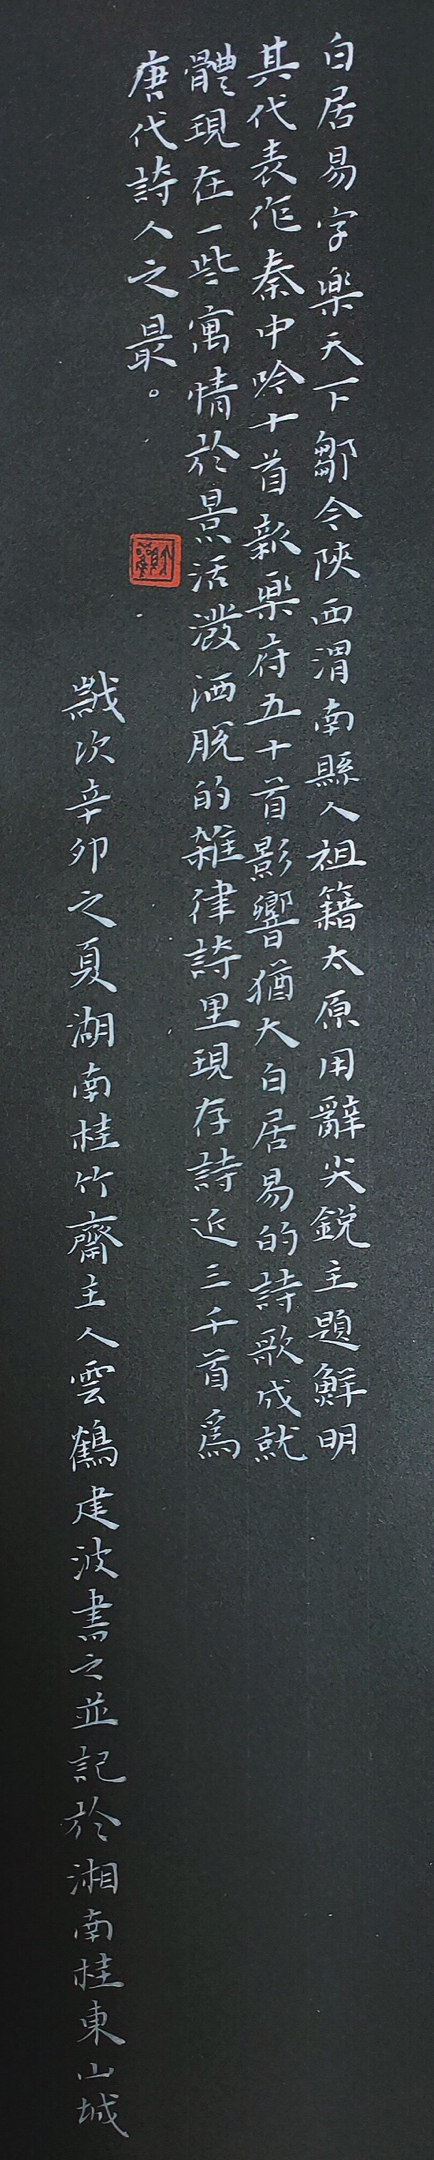 白居易字樂天下邽令陝西渭南縣人祖籍太原用辭尖銳主題鮮明
其代表作秦中吟十首新樂府五十首影響猶大白居易的詩歌成就
體現在一些寓情於景活潑洒脫的雜律詩里現存詩近三千首為
唐代詩人之最。
歲次辛卯之夏湖南桂竹齋主人雲鶴建波書之並記於湘南桂東山城